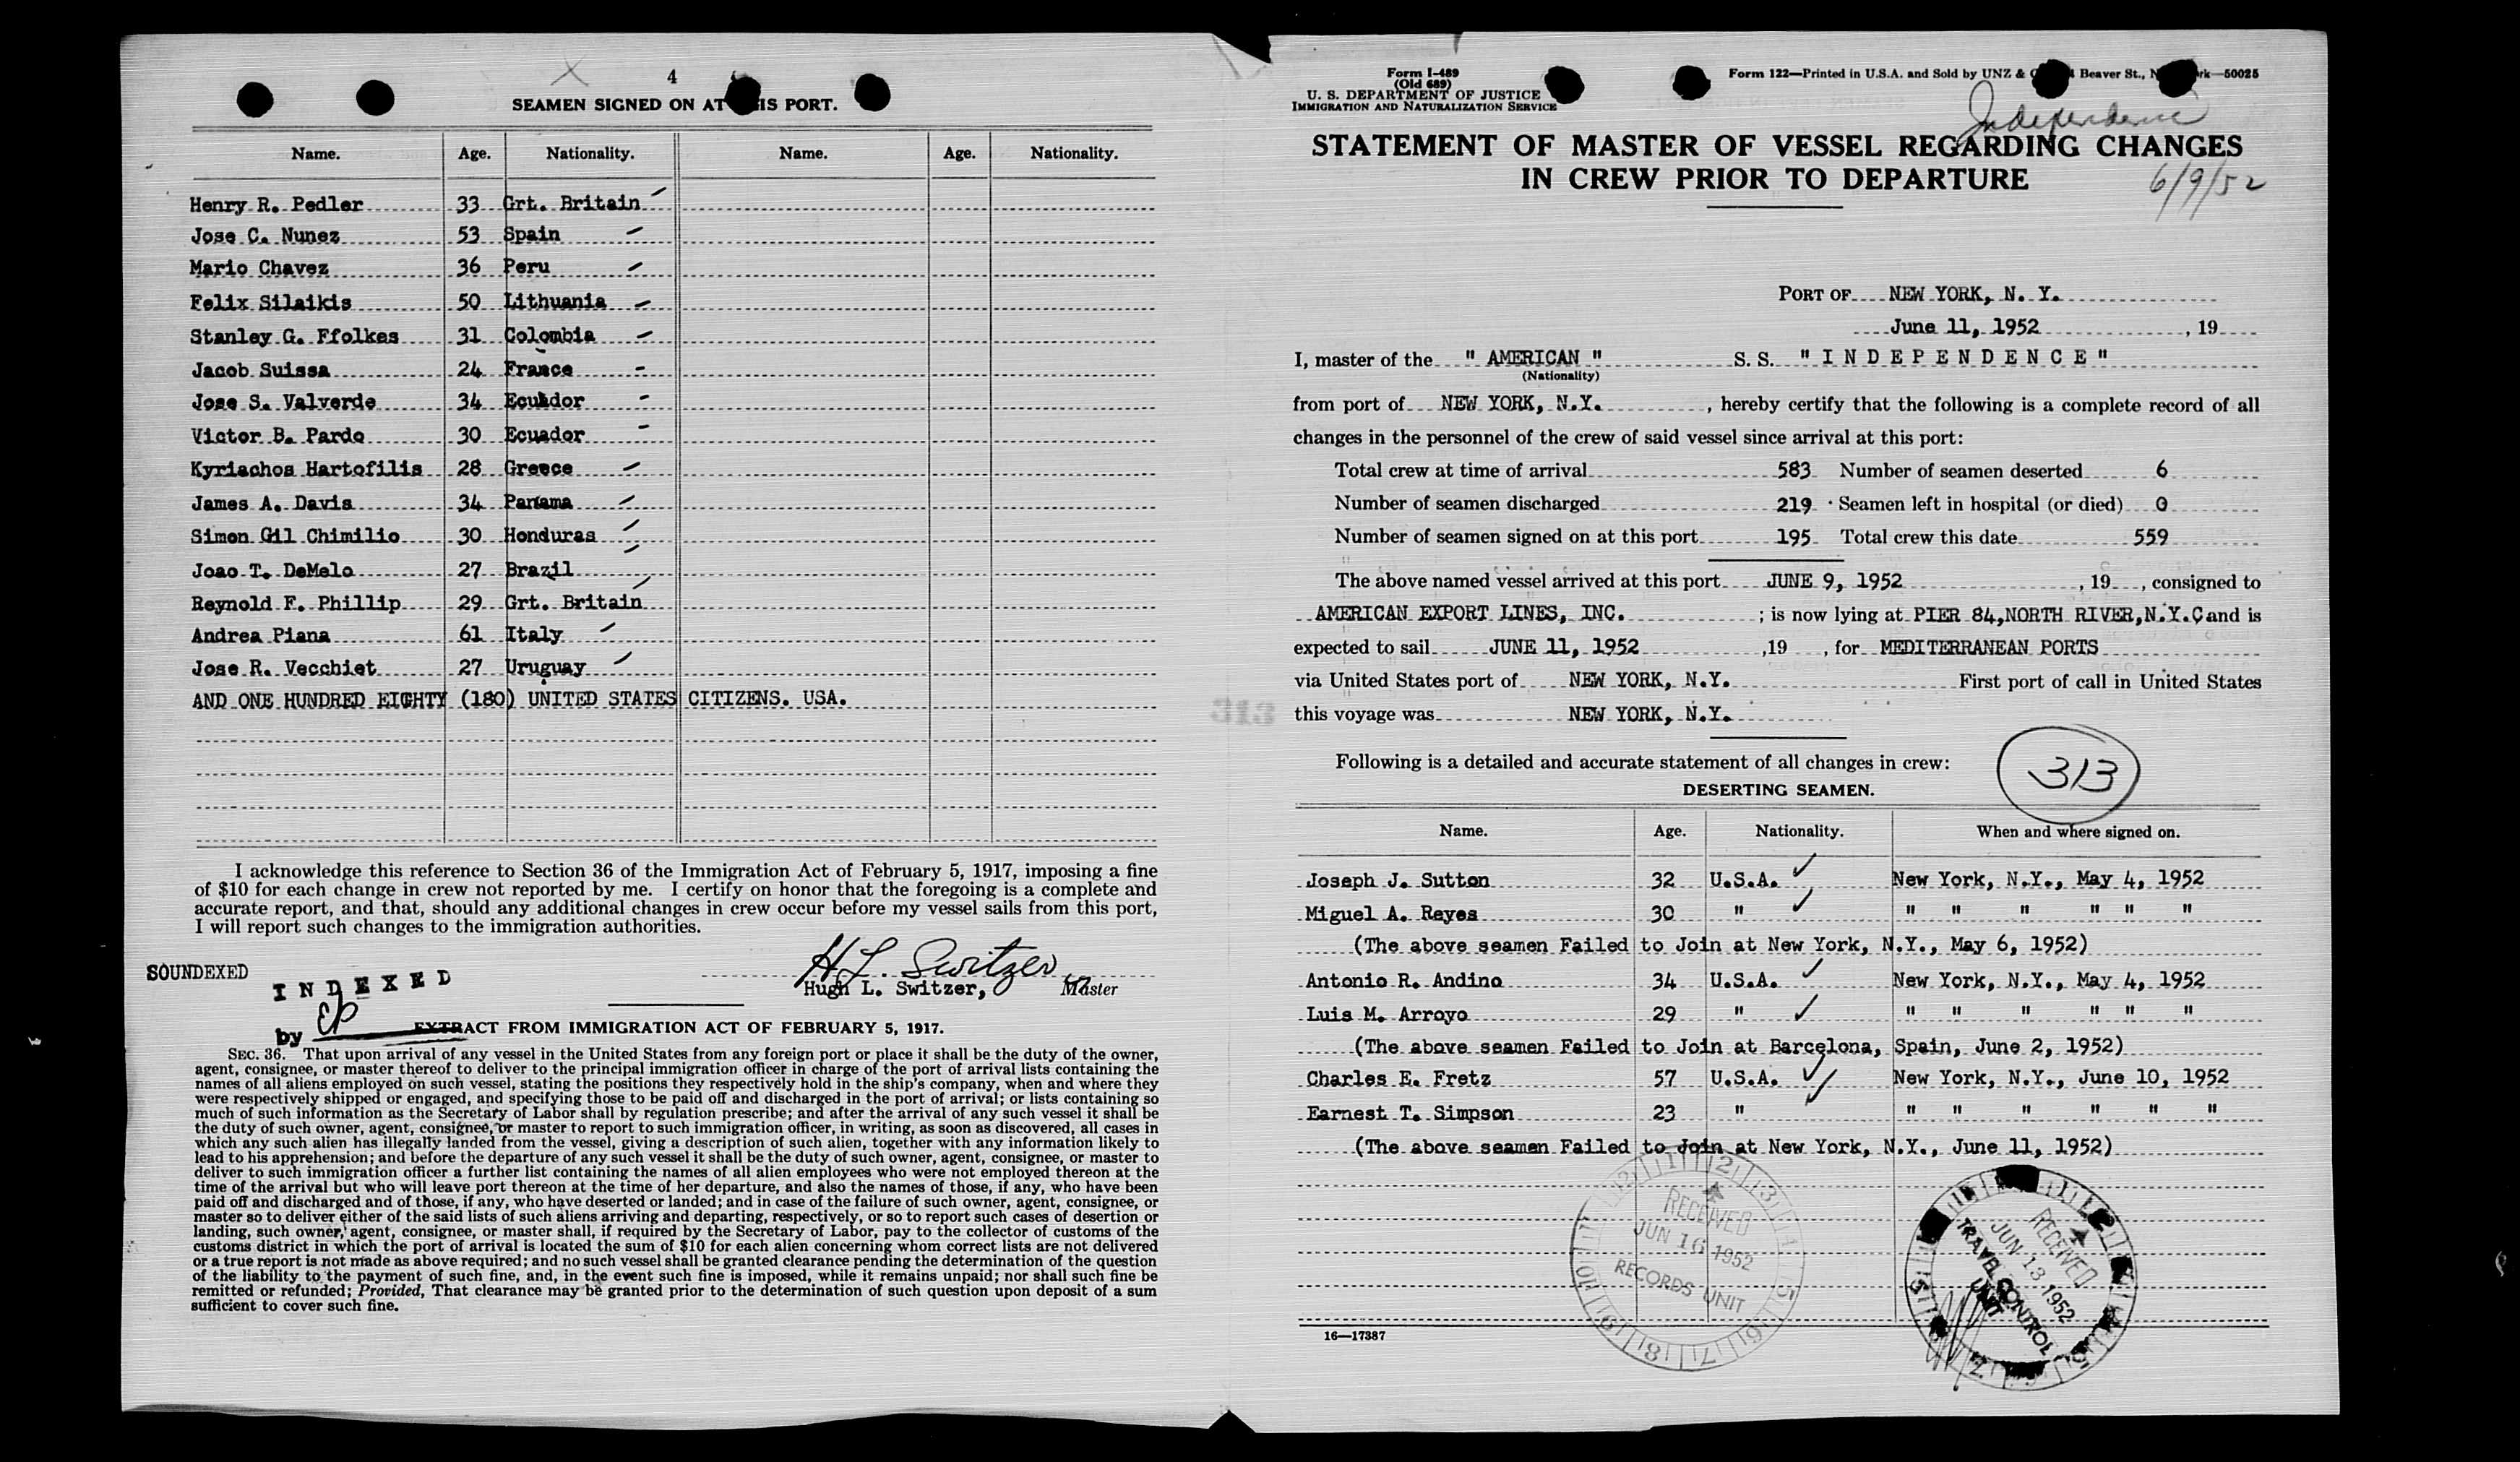 4
SEAMEN SIGNED ON AT IS PORT.
Name. Age. Nationality. Name. Age. Nationality.
Henry R. Pedler 33 Grt. Britain
Jose C. Nunez 53 Spain
Mario Chavez 36 Peru
Felix Silaikis 50 Lithuania
Stanley G. Ffolkes 31 Colombia
Jacob Suissa 24 France
Jose S. Valverde 34 Ecuador
Victor B. Pardo 30 Ecuador
Kyriachos Hartofilis 28 Greece
James A. Davis 34 Panama
Simon Gil Chimilio 30 Honduras
Joao T. DeMelo 27 Brazil
Reynold F. Phillip 29 Grt. Britain
Andrea Piana 61 Italy
Jose R. Vecchiet 27 Uruguay
AND ONE HUNDRED EIGHTY (180) UNITED STATES CITIZENS. USA.
I acknowledge this reference to Section 36 of the Immigration Act of February 5, 1917, imposing a fine
of $10 for each change in crew not reported by me. I certify on honor that the foregoing is a complete and
accurate report, and that, should any additional changes in crew occur before my vessel sails from this port,
I will report such changes to the immigration authorities.
H L. Switzer
SOUNDEXED
Hugh L. Switzer, Master
INDEXED
by EP
EXTRACT FROM IMMIGRATION ACT OF FEBRUARY 5, 1917.
SEC. 36. That upon arrival of any vessel in the United States from any foreign port or place it shall be the duty of the owner,
agent, consignee, or master thereof to deliver to the principal immigration officer in charge of the port of arrival lists containing the
names of all aliens employed on such vessel, stating the positions they respectively hold in the ship's company, when and where they
were respectively shipped or engaged, and specifying those to be paid off and discharged in the port of arrival; or lists containing so
much of such information as the Secretary of Labor shall by regulation prescribe; and after the arrival of any such vessel it shall be
the duty of such owner, agent, consignee, or master to report to such immigration officer, in writing, as soon as discovered, all cases in
which any such alien has illegally landed from the vessel, giving a description of such alien, together with any information likely to
lead to his apprehension; and before the departure of any such vessel it shall be the duty of such owner, agent, consignee, or master to
deliver to such immigration officer a further list containing the names of all alien employees who were not employed thereon at the
time of the arrival but who will leave port thereon at the time of her departure, and also the names of those, if any, who have been
paid off and discharged and of those, if any, who have deserted or landed; and in case of the failure of such owner, agent, consignee, or
master so to deliver either of the said lists of such aliens arriving and departing, respectively, or so to report such cases of desertion or
landing, such owner, agent, consignee, or master shall, if required by the Secretary of Labor, pay to the collector of customs of the
customs district in which the port of arrival is located the sum of $10 for each alien concerning whom correct lists are not delivered
or a true report is not made as above required; and no such vessel shall be granted clearance pending the determination of the question
of the liability to the payment of such fine, and, in the event such fine is imposed, while it remains unpaid; nor shall such fine be
remitted or refunded; Provided, That clearance may be granted prior to the determination of such question upon deposit of a sum
sufficient to cover such fine.
313
Form I-489
(Old 689)
U. S. DEPARTMENT OF JUSTICE
IMMIGRATION AND NATURALIZATION SERVICE
Form 122—Printed in U.S.A. and Sold by UNZ & Beaver St., 50025
Independence
STATEMENT OF MASTER OF VESSEL REGARDING CHANGES
IN CREW PRIOR TO DEPARTURE
6/9/52
PORT OF NEW YORK, N. Y.
June 11, 1952, 19
I, master of the " AMERICAN " S. S. " I N D E P E N D E N C E "
(Nationality)
from port of NEW YORK, N.Y., hereby certify that the following is a complete record of all
changes in the personnel of the crew of said vessel since arrival at this port:
Total crew at time of arrival 583 Number of seamen deserted 6
Number of seamen discharged 219 Seamen left in hospital (or died) 0
Number of seamen signed on at this port 195 Total crew this date 559
The above named vessel arrived at this port JUNE 9, 1952, 19, consigned to
AMERICAN EXPORT LINES, INC. ; is now lying at PIER 84,NORTH RIVER,N.Y.C and is
expected to sail JUNE 11, 1952 ,19 , for MEDITERRANEAN PORTS
via United States port of NEW YORK, N.Y. First port of call in United States
this voyage was NEW YORK, N.Y.
Following is a detailed and accurate statement of all changes in crew:
313
DESERTING SEAMEN.
Name. Age. Nationality. When and where signed on.
Joseph J. Sutton 32 U.S.A. New York, N.Y., May 4, 1952
Miguel A. Reyes 30 " " " " " " "
(The above seamen Failed to Join at New York, N.Y., May 6, 1952)
Antonio R. Andino 34 U.S.A. New York, N.Y., May 4, 1952
Luis M. Arroyo 29 " " " " " " "
(The above seamen Failed to Join at Barcelona, Spain, June 2, 1952)
Charles E. Fretz 57 U.S.A. New York, N.Y., June 10, 1952
Earnest T. Simpson 23 " " " " " " "
(The above seamen Failed to Join at New York, N.Y., June 11, 1952)
RECEIVED
JUN 16 1952
RECORDS UNIT
RECEIVED
JUN 13 1952
TRAVEL CONTROL
UNIT
16—17387